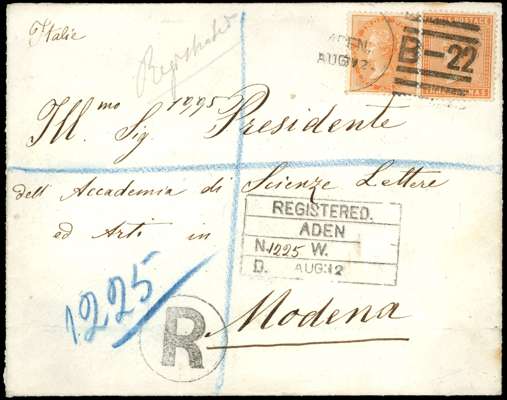 Italie
Registrated
ADEN.
AUG 12
B-22
POSTAGE
1225
Ill.mo Sig. Presidente
dell' Accademia di Scienze Lettere
ed Arti in
REGISTERED.
ADEN
N. 1225 W.
D. AUG 12
1225
R
Modena